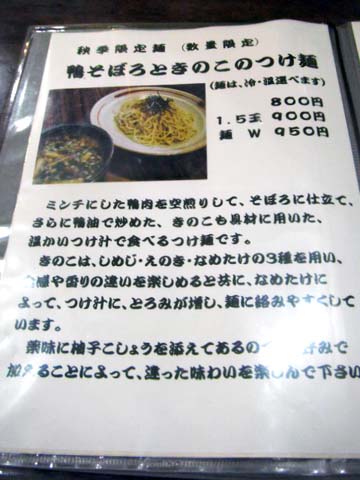 秋季限定麺 (数量限定)
鴨そぼろときのこのつけ麺
(麺は、冷・温選べます)
800円
1.5玉 900円
麺 W 950円
ミンチにした鴨肉を空煎りして、そぼろに仕立て、
さらに鴨油で炒めた、きのこも具材に用いた、
温かいつけ汁で食べるつけ麺です。
きのこは、しめじ・えのき・なめたけの3種を用い、
や香りの違いを楽しめると共に、なめたけに
よって、つけ汁に、とろみが増し、麺に絡みやすくして
います。
薬味に柚子こしょうを添えてあるの みで
加えることによって、違った味わいを楽しんで下さい